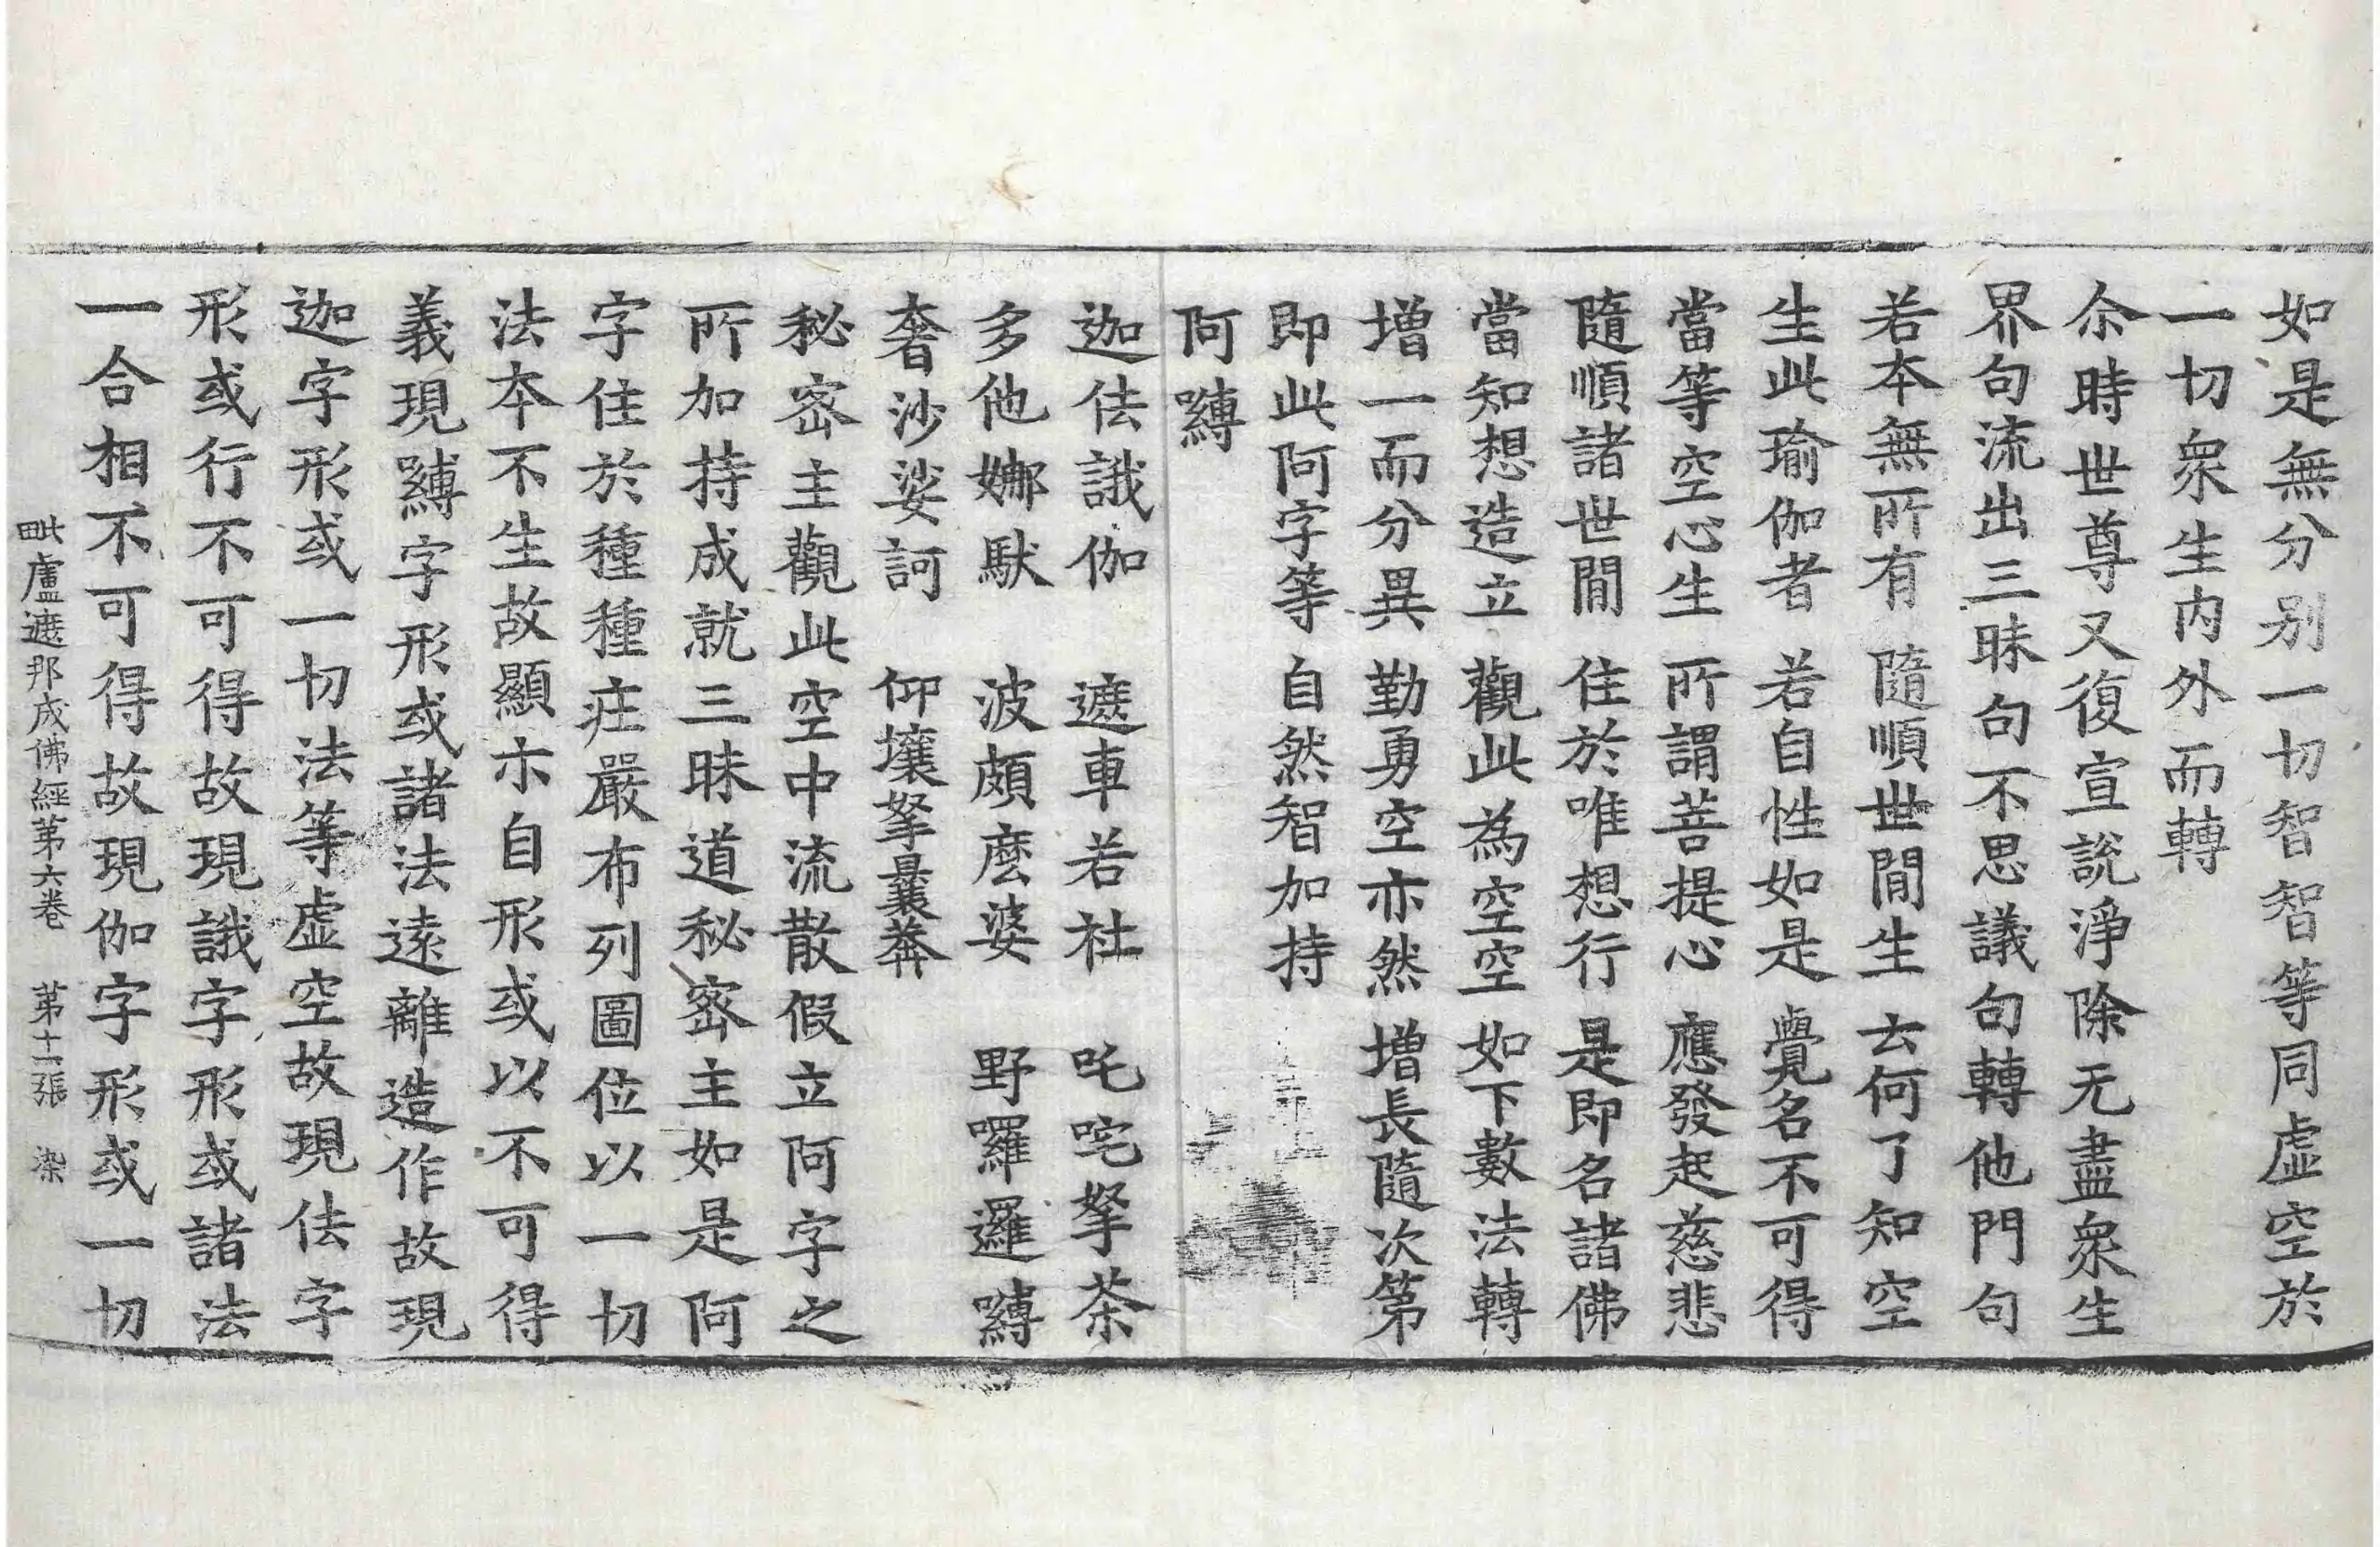 如是無分別一切智智等同虛空於
一切衆生內外而轉
尒時世尊又復宣說淨除无盡衆生
界句流出三昧句不思議句轉他門句
若本無所有　隨順世間生　去何了知空
生此瑜伽者　若自性如是　覺名不可得
當等空心生　所謂菩提心　應發起慈悲
隨順諸世間　住於唯想行　是即名諸佛
當知想造立　觀此為空空　如下數法轉
增一而分異　勤勇空亦然　增長隨次第
即此阿字等　自然智加持
阿嚩
迦佉誐伽　遮車若社　吒咤拏荼
多他娜馱　波頗麼婆　野囉邏嚩
奢沙娑訶　仰壤拏曩莽
秘密主觀此空中流散假立阿字之
所加持成就三昧道秘密主如是阿
字住於種種莊嚴布列圖位以一切
法本不生故顯示自形或以不可得
義現嚩字形或諸法遠離造作故現
迦字形或一切法等虛空故現佉字
形或行不可得故現誐字形或諸法
一合相不可得故現伽字形或一切
毗盧遮那成佛經第六卷　第十二張　染